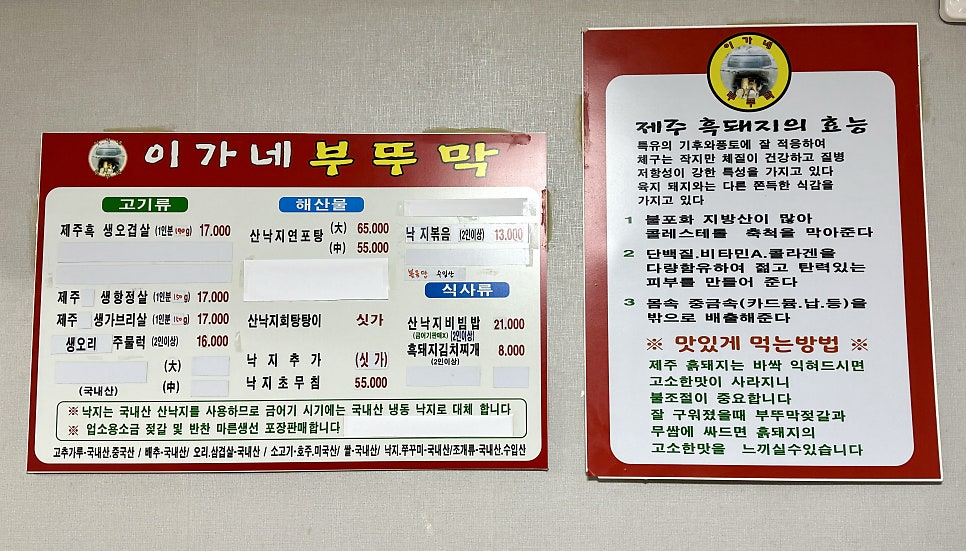 이가네 부뚜막
고기류
제주흑 생오겹살 (1인분 190g) 17.000
제주 생항정살 (1인분 150g) 17.000
제주 생가브리살 (1인분 150g) 17.000
생오리 주물럭 (2인이상) 16.000
(大)
(국내산) (中)
해산물
산낙지연포탕 (大) 65.000
(中) 55.000
산낙지회탕탕이 싯가
낙지추가 (싯가)
낙지초무침 55.000
낙지볶음 (2인이상) 13.000
볶음만 수입산
식사류
산낙지비빔밥 21.000
(금어기판매X) (2인이상)
흑돼지김치찌개 8.000
(2인이상)
※ 낙지는 국내산 산낙지를 사용하므로 금어기 시기에는 국내산 냉동 낙지로 대체 합니다
※ 업소용소금 젖갈 및 반찬 마른생선 포장판매합니다
고추가루-국내산,중국산 / 배추-국내산/ 오리.삼겹살-국내산 / 소고기-호주.미국산/ 쌀-국내산/ 낙지.쭈꾸미-국내산/조개류-국내산.수입산
이가네
부뚜막
제주 흑돼지의 효능
특유의 기후와풍토에 잘 적응하여
체구는 작지만 체질이 건강하고 질병
저항성이 강한 특성을 가지고 있다
육지 돼지와는 다른 쫀득한 식감을
가지고 있다
1 불포화 지방산이 많아
콜레스테롤 축척을 막아준다
2 단백질.비타민A.콜라겐을
다량함유하여 젊고 탄력있는
피부를 만들어 준다
3 몸속 중금속(카드뮴.납.등)을
밖으로 배출해준다
※ 맛있게 먹는방법 ※
제주 흙돼지는 바싹 익혀드시면
고소한맛이 사라지니
불조절이 중요합니다
잘 구워졌을때 부뚜막젖갈과
무쌈에 싸드면 흙돼지의
고소한맛을 느끼실수있습니다